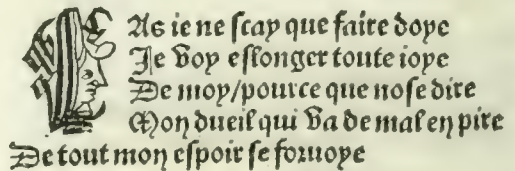 LAs ie ne scay que faire doye
Je voy eslonger toute ioye
De moy/pource que nose dire
Mon dueil qui va de mal en pire
De tout mon espoir se foruoye